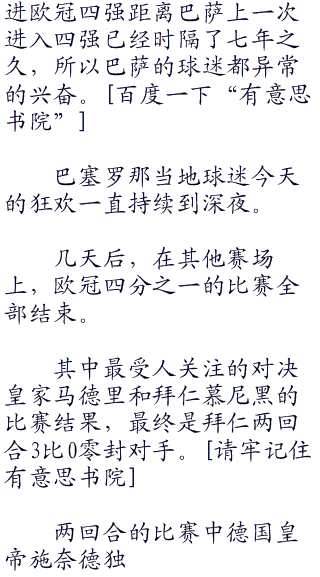 进欧冠四强距离巴萨上一次
进入四强已经时隔了七年之
久，所以巴萨的球迷都异常
的兴奋。[百度一下“有意思
书院”]
巴塞罗那当地球迷今天
的狂欢一直持续到深夜。
几天后，在其他赛场
上，欧冠四分之一的比赛全
部结束。
其中最受人关注的对决
皇家马德里和拜仁慕尼黑的
比赛结果，最终是拜仁两回
合3比0零封对手。[请牢记住
有意思书院]
两回合的比赛中德国皇
帝施奈德独